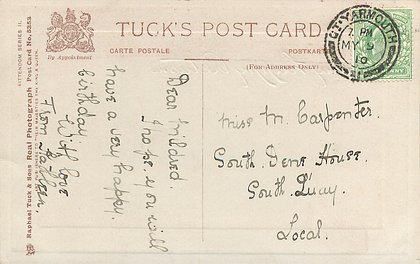 TUCK'S POST CARD
CARTE POSTALE
POSTKARTE
By Appointment
(FOR ADDRESS ONLY)
GT. YARMOUTH
PM
MY 9
10
RITTENDOM SERIES II.
Raphael Tuck & Sons Real Photograph Post Card No. 5353
Dear Mildred.
I hope you will
have a very happy.
birthday
With love
From
Miss M. Carpenter.
South Dene House.
South Quay.
Local.